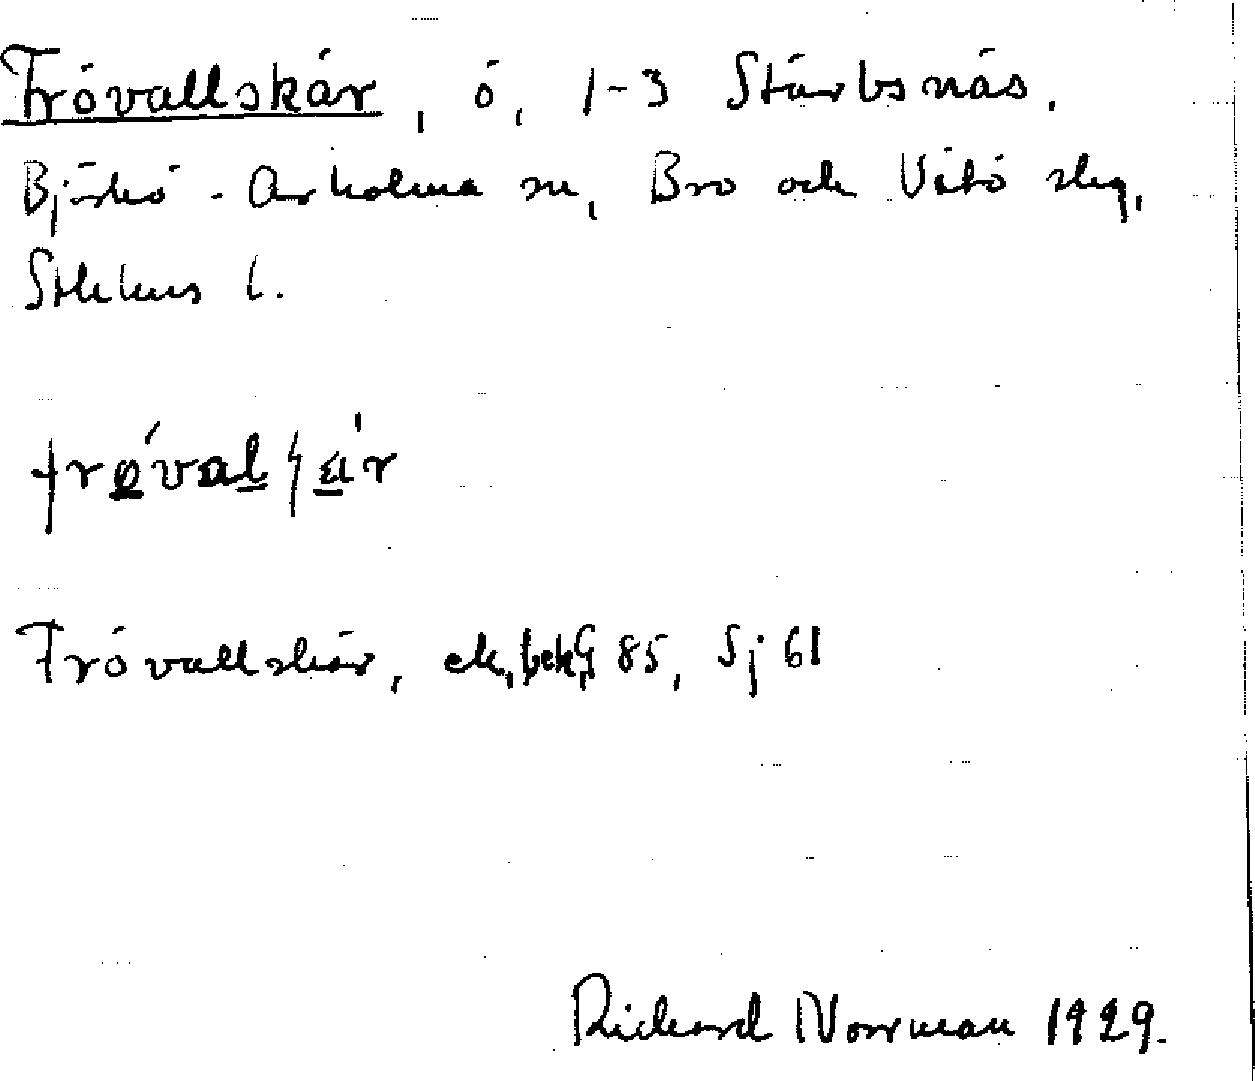 Frövallskär, ö, 1-3 Stärbsnäs.
Björkö - Arholma sn, Bro och Vätö slg,
Sthlms l.
Frövallskär, ek, bek, G 85, Sj 61
Rickard Norrman 1929.